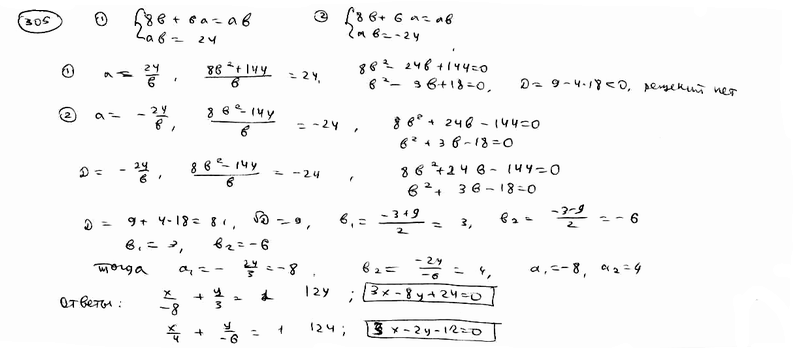 305 1) { 8в + 6а = ав 2) { 8в + 6а = ав
ав = 24 ав = -24
1) а = 24/в, (8в² + 144)/в = 24, 8в² - 24в + 144 = 0
в² - 3в + 18 = 0, D = 9 - 4·18 < 0, решений нет
2) а = - 24/в, (8в² - 144)/в = -24, 8в² + 24в - 144 = 0
в² + 3в - 18 = 0
D = - 24/в, (8в² - 144)/в = -24, 8в² + 24в - 144 = 0
в² + 3в - 18 = 0
D = 9 + 4·18 = 81, √D = 9, в₁ = (-3+9)/2 = 3, в₂ = (-3-9)/2 = -6
в₁ = 3, в₂ = -6
тогда а₁ = - 24/3 = -8, в₂ = -24/-6 = 4, а₁ = -8, а₂ = 4
Ответы: x/-8 + y/3 = 1 |24 ; 3x - 8y + 24 = 0
x/4 + y/-6 = 1 |24 ; 3x - 2y - 12 = 0